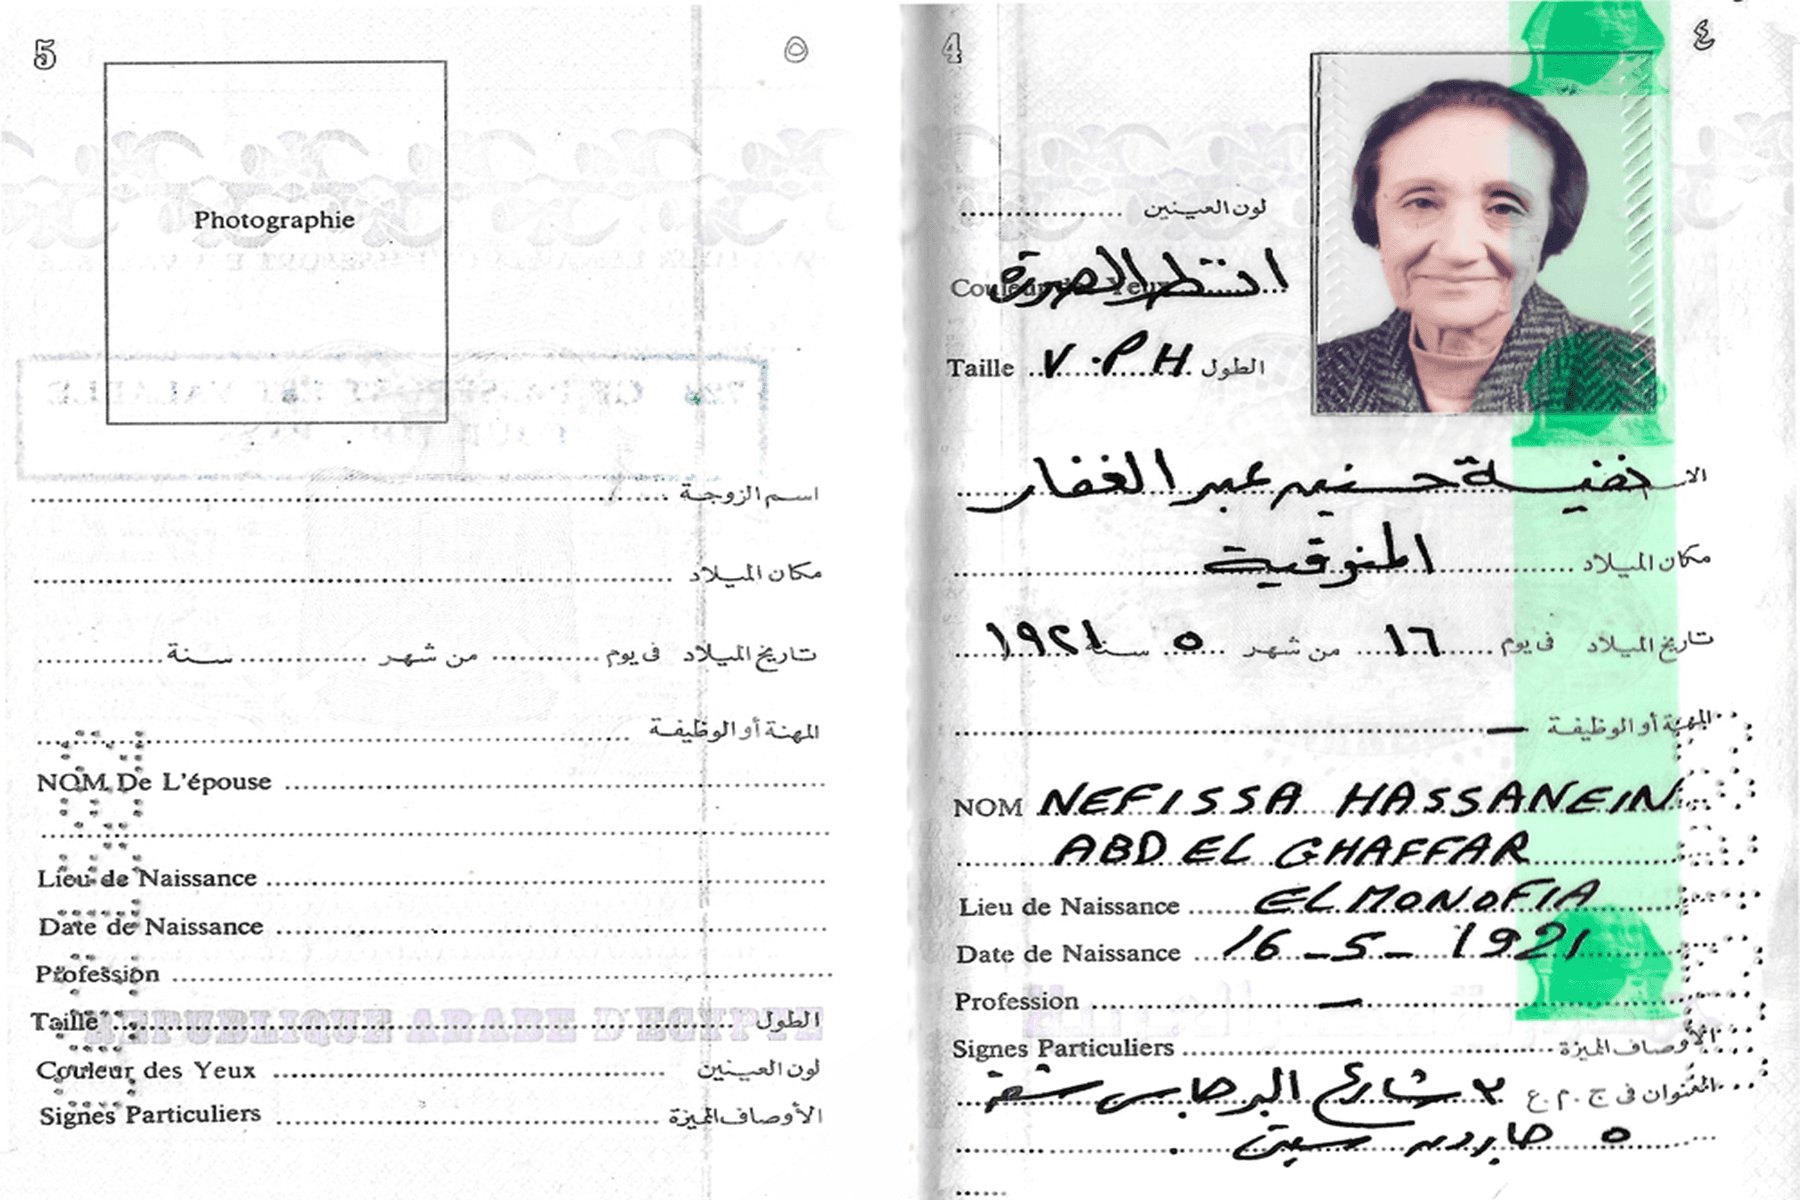 5 ٥
Photographie
اسم الزوجة
مكان الميلاد
تاريخ الميلاد في يوم من شهر سنة
المهنة أو الوظيفة
NOM De L'épouse
Lieu de Naissance
Date de Naissance
Profession
REPUBLIQUE ARABE D'EGYPTE
Taille الطول
Couleur des Yeux لون العينين
Signes Particuliers الأوصاف المميزة
4 ٤
لون العينين
Couleur des Yeux انتظر الصورة
Taille V.PH الطول
الا نفيسة حسنين عبد الغفار
مكان الميلاد المنوفية
تاريخ الميلاد في يوم ١٦ من شهر ٥ سنة ١٩٢١
المهنة أو الوظيفة —
NOM NEFISSA HASSANEIN
ABD EL GHAFFAR
Lieu de Naissance EL MONOFIA
Date de Naissance 16-5-1921
Profession —
Signes Particuliers الأوصاف المميزة
العنوان في ج.م.ع ٣ شارع البرجاس شقة
٥ جاردن سيتى